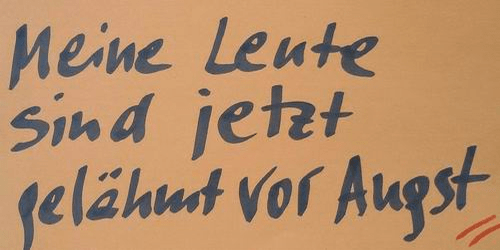 Meine Leute
sind jetzt
gelähmt vor Angst